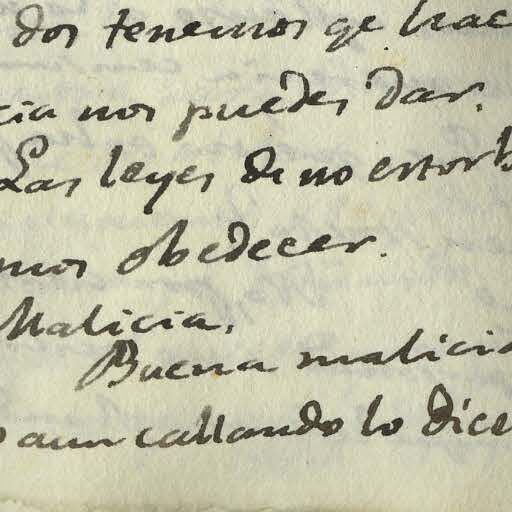 dos tenemos qe hac
cia nos puedes dar.
Las leyes de no estorb
mos obedecer.
Malicia.
Buena malicia
o aun callando lo dice